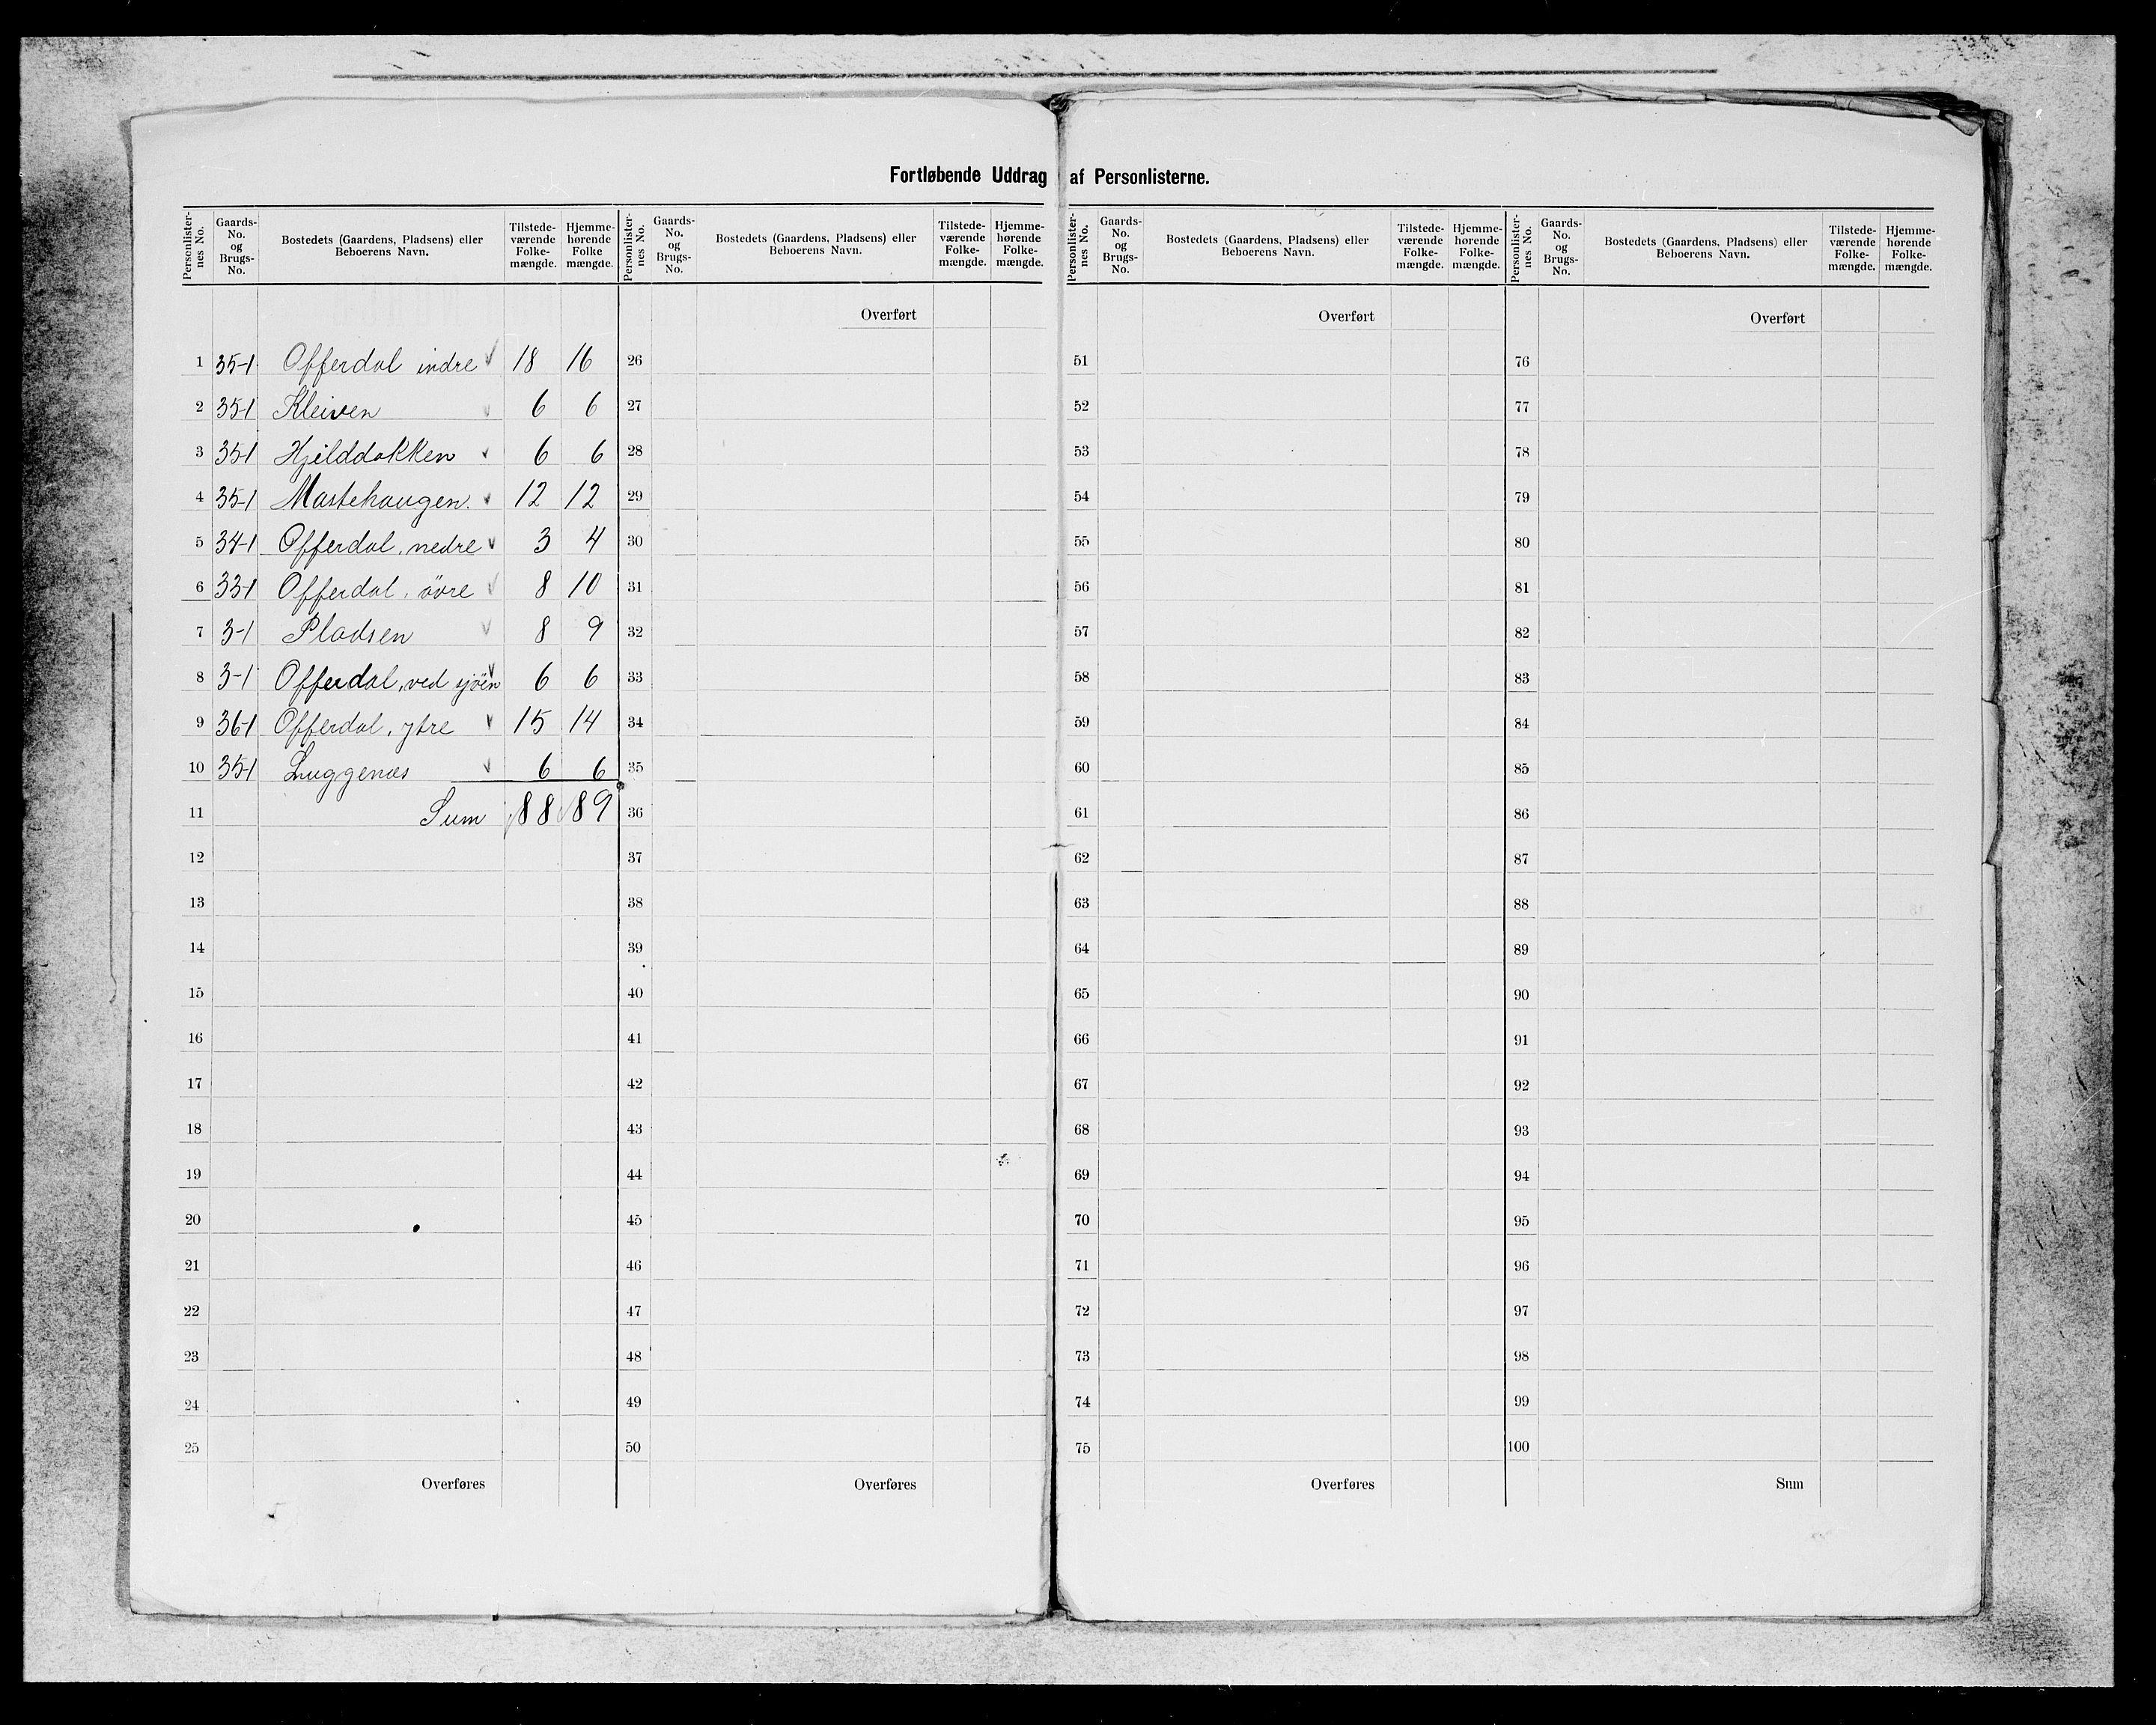 Fortløbende Uddrag af Personlisterne.
Personlisternes No. | Gaards-No. og Brugs-No. | Bostedets (Gaardens, Pladsens) eller Beboerens Navn. | Tilstedeværende Folke-mængde. | Hjemmehørende Folke mængde.
Personlisternes No. | Gaards-No. og Brugs-No. | Bostedets (Gaardens, Pladsens) eller Beboerens Navn. | Tilstedeværende Folke-mængde. | Hjemmehørende Folke-mængde.
Personlisternes No. | Gaards-No. og Brugs-No. | Bostedets (Gaardens, Pladsens) eller Beboerens Navn. | Tilstedeværende Folke-mængde. | Hjemmehørende Folke-mængde.
Personlisternes No. | Gaards-No. og Brugs-No. | Bostedets (Gaardens, Pladsens) eller Beboerens Navn. | Tilstedeværende Folke-mængde. | Hjemmehørende Folke-mængde.
1 35-1 Offerdal indre 18 16
2 35-1 Kleiven 6 6
3 35-1 Hjelddokken 6 6
4 35-1 Mastehaugen. 12 12
5 34-1 Offerdal, nedre 3 4
6 33-1 Offerdal, övre 8 10
7 3-1 Pladsen 8 9
8 3-1 Offerdal, ved sjöen 6 6
9 36-1 Offerdal, ytre 15 14
10 35-1 Luggenæs 6 6
11 Sum 88 89
12
13
14
15
16
17
18
19
20
21
22
23
24
25
Overføres
Overført
26
27
28
29
30
31
32
33
34
35
36
37
38
39
40
41
42
43
44
45
46
47
48
49
50
Overføres
Overført
51
52
53
54
55
56
57
58
59
60
61
62
63
64
65
66
67
68
69
70
71
72
73
74
75
Overføres
Overført
76
77
78
79
80
81
82
83
84
85
86
87
88
89
90
91
92
93
94
95
96
97
98
99
100
Sum